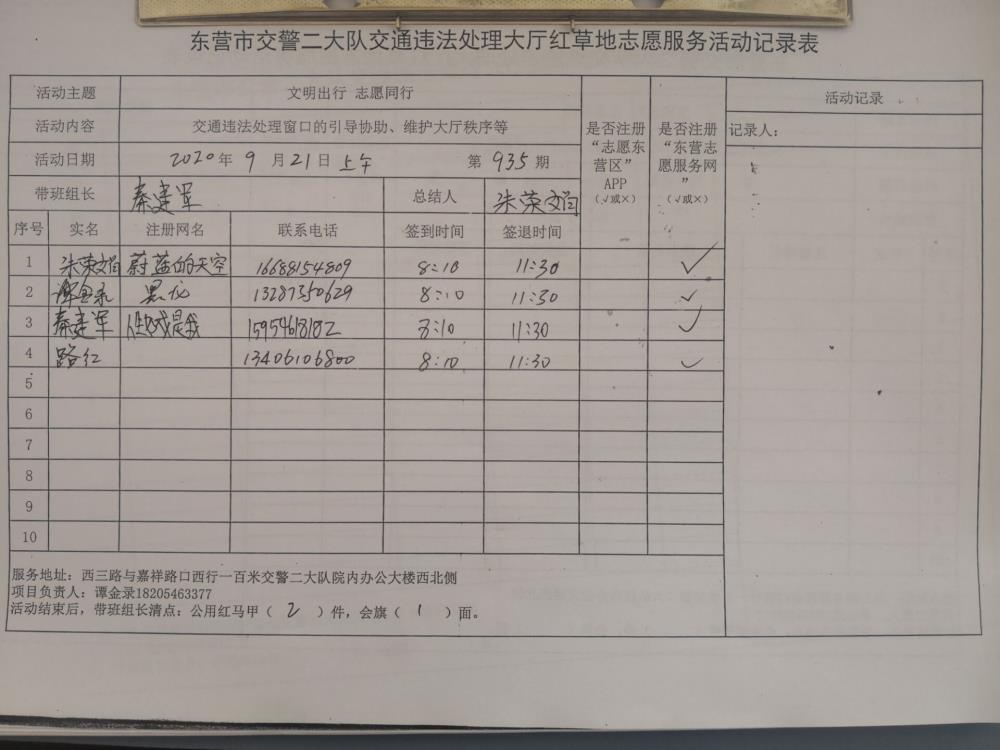 东营市交警二大队交通违法处理大厅红草地志愿服务活动记录表
活动主题 文明出行 志愿同行
活动内容 交通违法处理窗口的引导协助、维护大厅秩序等
活动日期 2020年9月21日上午 第935期
带班组长 秦建军 总结人 朱荣
是否注册“志愿东营区”APP（√或×）
是否注册“东营志愿服务网”（√或×）
活动记录
记录人：
序号 实名 注册网名 联系电话 签到时间 签退时间
1 朱荣 蔚蓝的天空 16688154809 8:10 11:30 ✓
2 黑龙 13287350629 8:10 11:30 ✓
3 秦建军 是我 15954618182 8:10 11:30 ✓
4 路红 13406106800 8:10 11:30 ✓
5
6
7
8
9
10
服务地址：西三路与嘉祥路口西行一百米交警二大队院内办公大楼西北侧
项目负责人：谭金录18205463377
活动结束后，带班组长清点：公用红马甲（2）件，会旗（1）面。